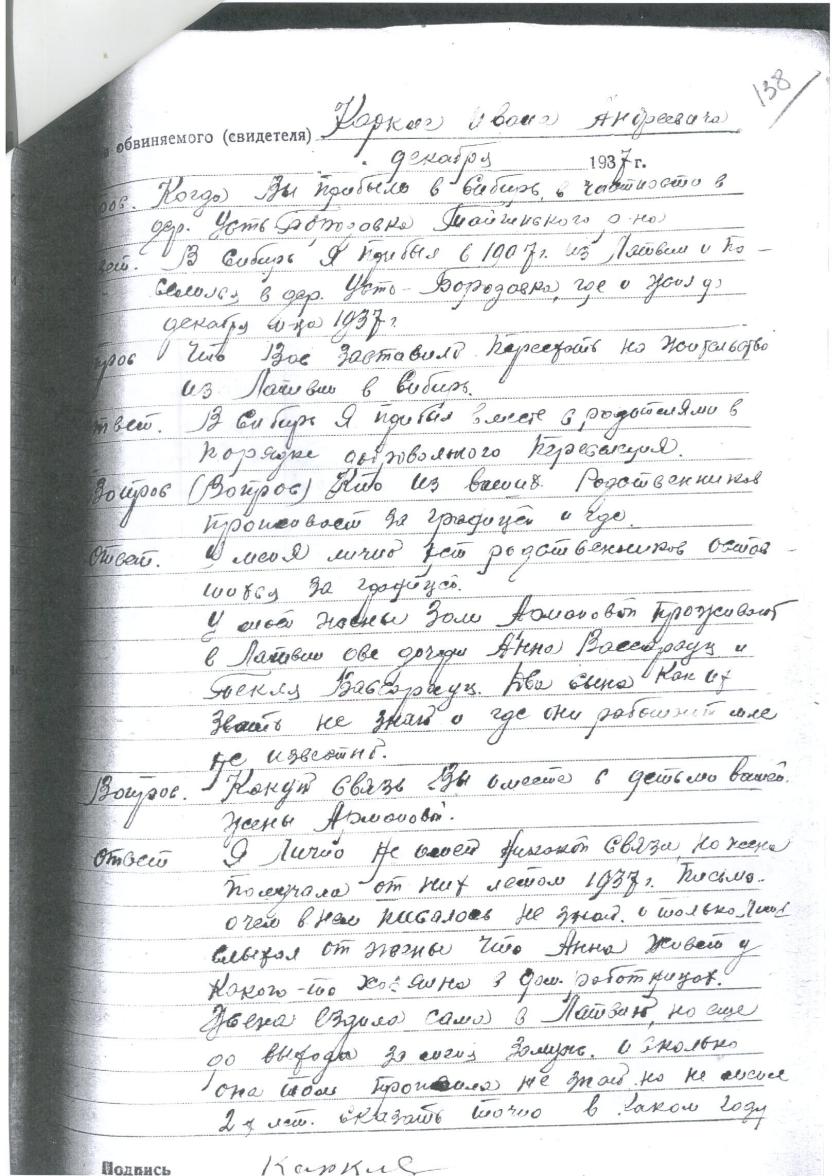 138
обвиняемого (свидетеля) Каркле Ивана Андреевича
декабря 1937 г.
рос. Когда Вы прибыли в Сибирь, в частности в
дер. Усть-Бородовка Тайгинского р-на
вет. В Сибирь Я прибыл в 1907 г. из Латвии и по-
селился в дер. Усть-Бородовка, где и жил до
декабря м-ца 1937 г.
прос Что Вас заставило переехать на жительство
из Латвии в Сибирь.
твет. В Сибирь Я прибыл вместе с родителями в
порядке добровольного переселения.
Вопрос (Вопрос) Кто из ваших Родственников
проживает за границей и где.
Ответ. У меня лично нет родственников остав-
шихся за границей.
У моей жены Зали проживают
в Латвии две дочери Анна и
Текля Два сына Как их
звать не знаю и где они работают мне
не известно.
Вопрос. Какую связь Вы имеете с детьми вашей
жены
Ответ Я Лично не имею никакой связи, но жена
получала от них летом 1937 г. письмо.
о чем в нем писалось не знаю. и только
слыхал от жены что Анна живет у
какого-то хозяина в дом. работницах.
Жена ездила сама в Латвию, но еще
до выхода за меня замуж. и сколько
она там прожила не знаю но не менее
2х лет. сказать точно в каком году
Подпись Каркле